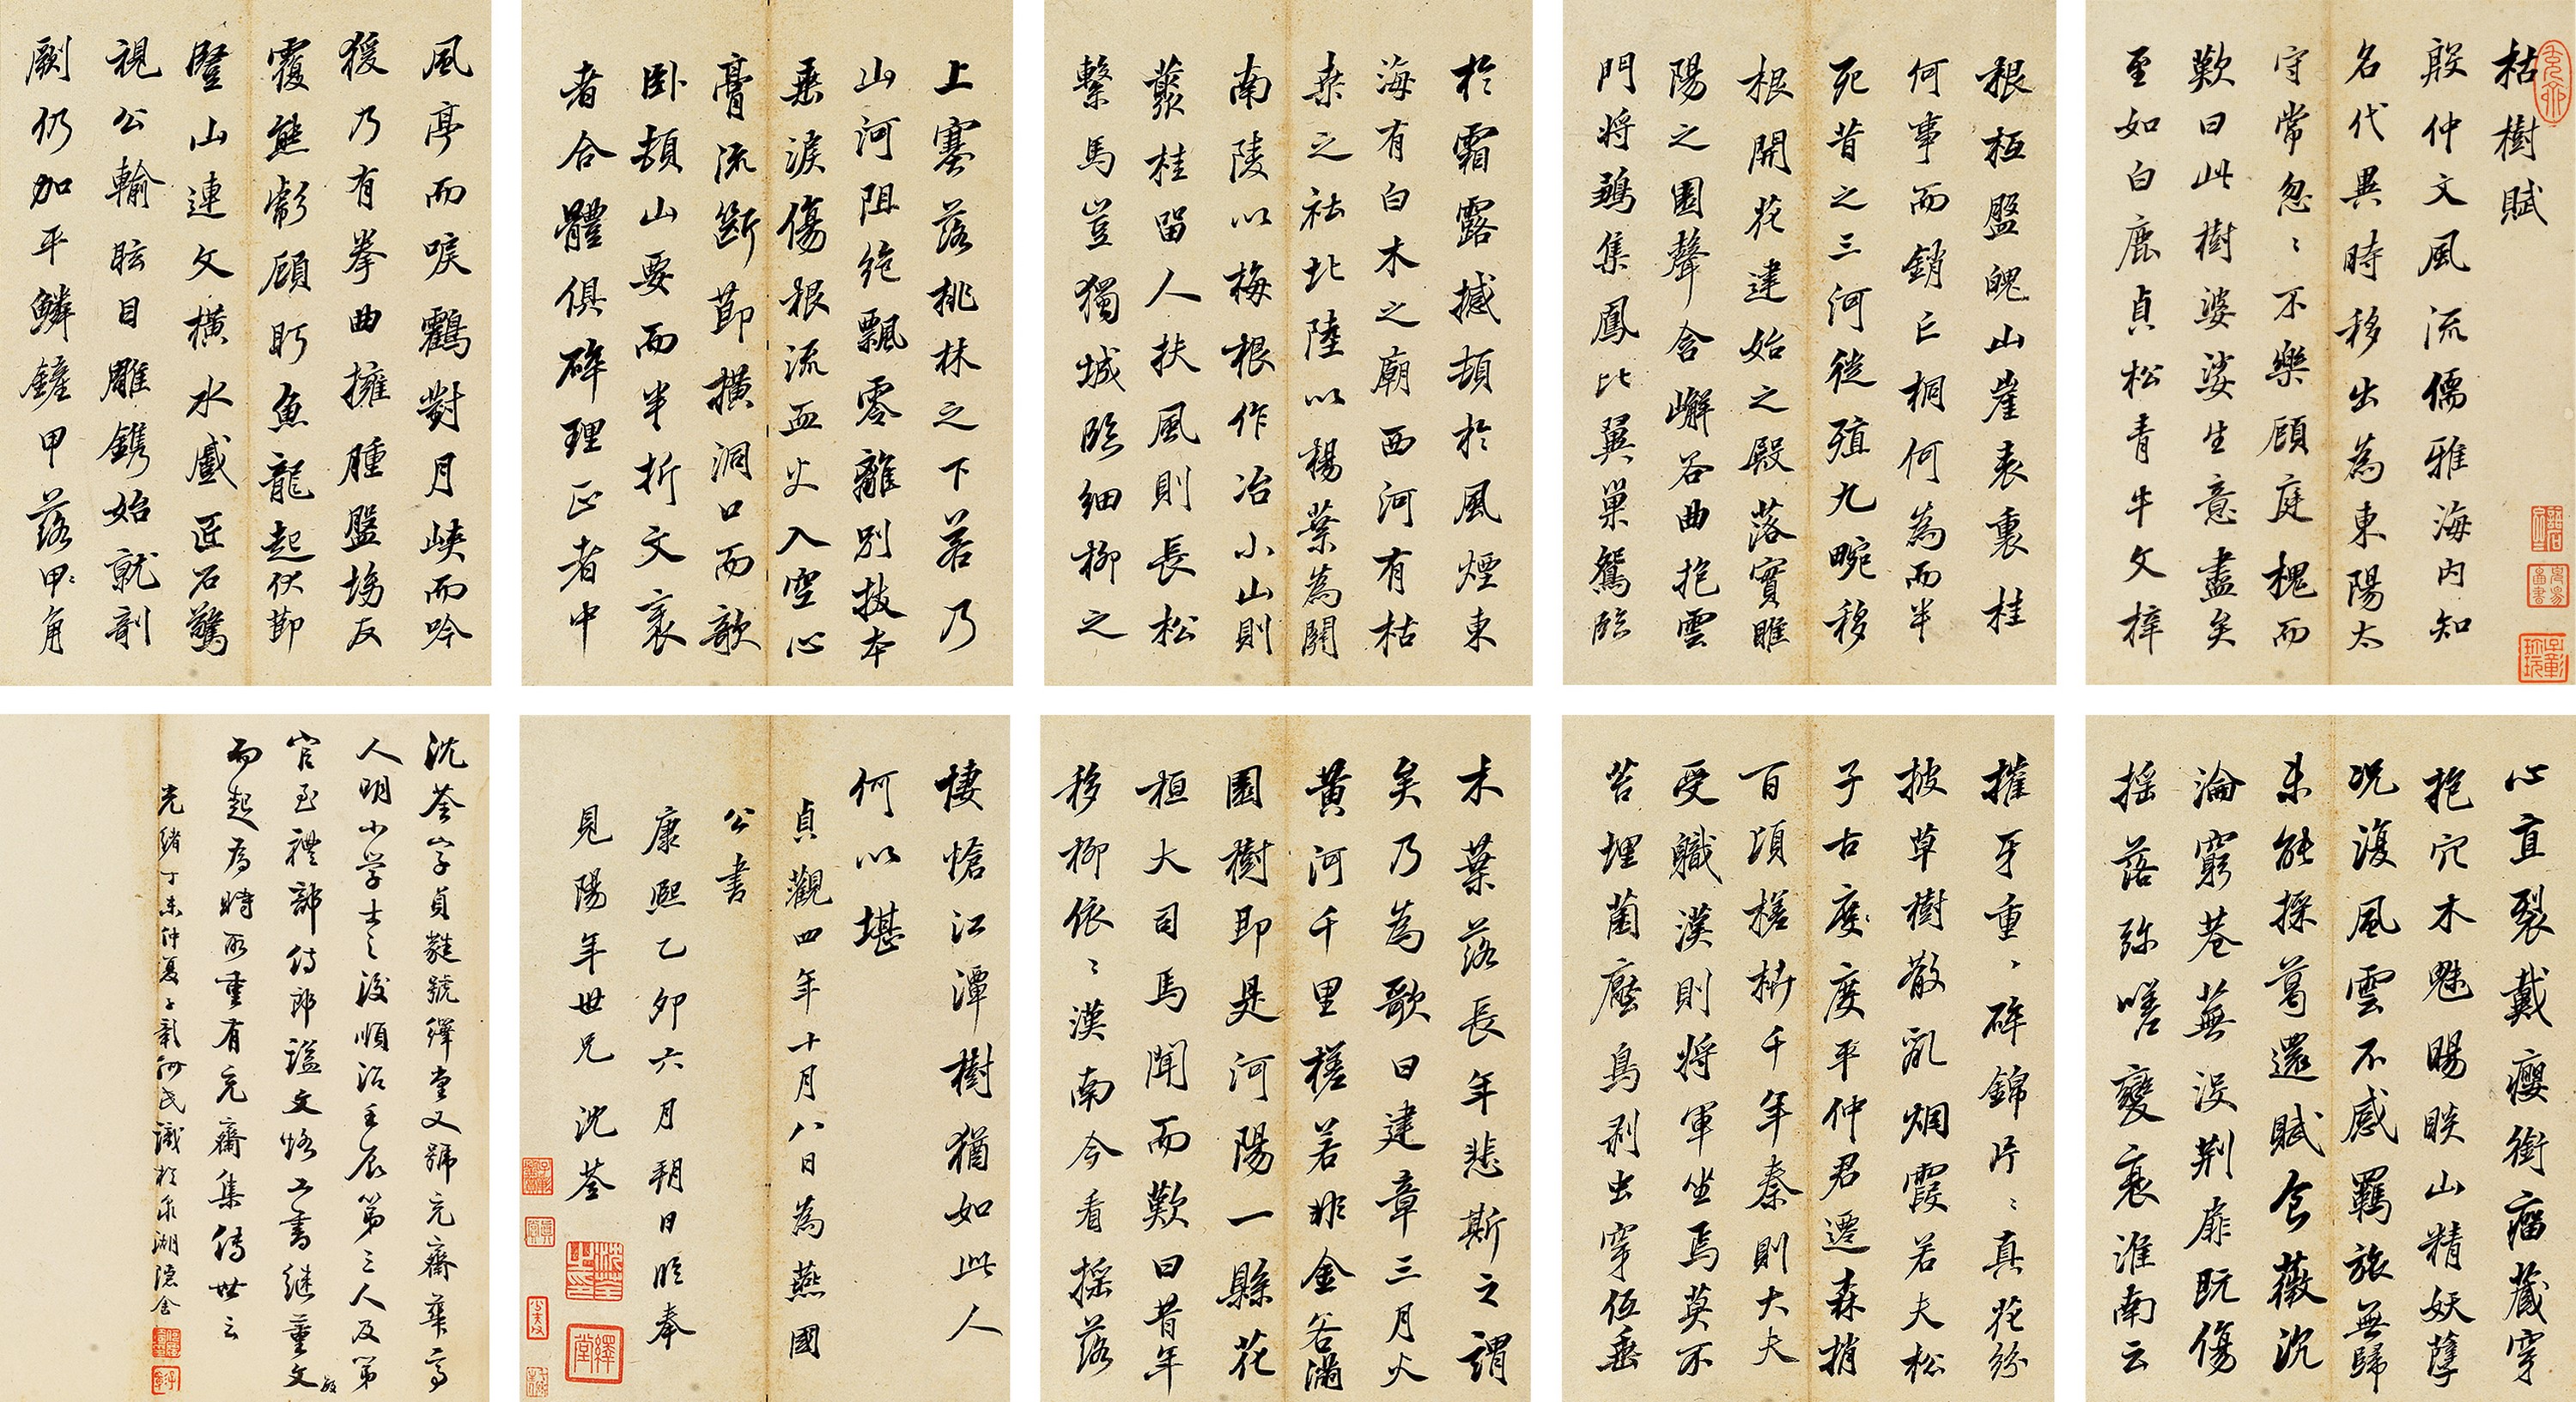 枯樹賦
殷仲文風流儒雅海内知
名代異時移出為東陽太
守常忽〻不樂顧庭槐而
歎曰此樹婆娑生意盡矣
至如白鹿貞松青牛文梓
根柢盤魄山崖表裏桂
何事而銷亡桐何為而半
死昔之三河徙殖九畹移
根開花建始之殿落實睢
陽之園聲含嶰谷曲抱雲
門將鶵集鳳比翼巢鴛臨
於霜露撼頓於風煙東
海有白木之廟西河有枯
桒之社北陸以楊葉為關
南陵以梅根作冶小山則
藂桂留人扶風則長松
繫馬豈獨城臨細柳之
上塞落桃林之下若乃
山河阻絶飄零離别拔本
垂淚傷根流血火入空心
膏流斷節橫洞口而欹
卧頓山要而半折文裹
者合體俱碎理正者中
風亭而唳鶴對月峽而吟
猨乃有拳曲擁腫盤坳反
覆熊彪顧眄魚龍起伏節
豎山連文橫水蹙匠石驚
視公輸眩目雕鐫始就剞
劂仍加平鱗鏟甲落甲〻角
心直裂戴癭銜瘤藏穿
抱穴木魅睗睒山精妖孽
况復風雲不感羈旅無歸
未能採葛還賦食薇沉
淪窮巷蕪没荆扉既傷
摇落弥嗟變衰淮南云
摧牙重〻碎錦片〻真花紛
披草樹散亂烟霞若夫松
子古度〻度平仲君遷森梢
百頃槎枿千年秦則大夫
受職漢則將軍坐焉莫不
苔埋菌壓鳥剥虫穿低垂
木葉落長年悲斯之謂
矣乃為歌曰建章三月火
黄河千里槎若非金谷滿
園樹即是河陽一縣花
桓大司馬聞而歎曰昔年
移柳依〻漢南今看摇落
悽愴江潭樹猶如此人
何以堪
貞觀四年十月八日為燕國
公書
康熙乙卯六月朔日臨奉
見陽年世兄 沈荃
沈荃字貞蕤號繹堂又號充齋華亭
人明小學士之後順治壬辰第三人及第
官至禮部侍郎諡文恪工書繼董文敏
而起為時所重有充齋集傳世云
光緒丁未仲夏